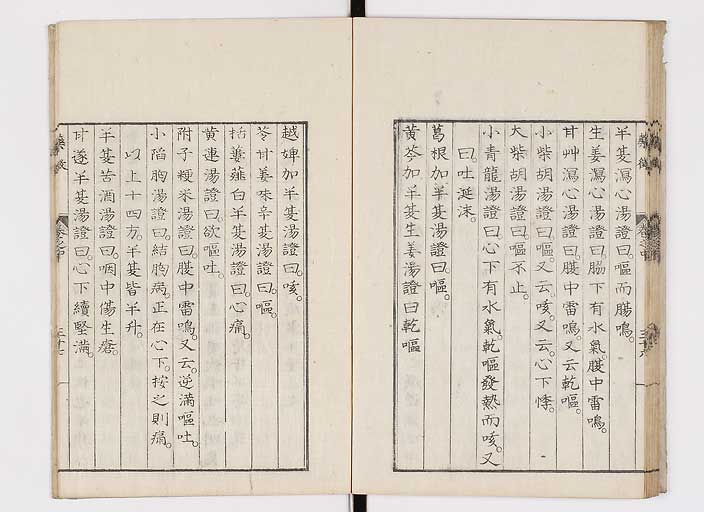 半夏瀉心湯證曰。嘔而腸鳴。
生姜瀉心湯證曰。脇下有水氣。腹中雷鳴。
甘艸瀉心湯證曰。腹中雷鳴。又云乾嘔。
小柴胡湯證曰。嘔。又云。咳。又云。心下悸。
大柴胡湯證曰。嘔不止。
小青龍湯證曰。心下有水氣。乾嘔發熱而咳。又
曰。吐涎沫。
葛根加半夏湯證曰。嘔。
黃芩加半夏生姜湯證曰乾嘔
越婢加半夏湯證曰。咳。
苓甘姜味辛夏湯證曰。嘔。
栝蔞薤白半夏湯證曰。心痛。
黃連湯證曰。欲嘔吐。
附子粳米湯證曰。腹中雷鳴。又云。逆滿嘔吐。
小陷胸湯證曰。結胸病。正在心下。按之則痛。
以上十四方。半夏皆半升。
半夏苦酒湯證曰。咽中傷生瘡。
甘遂半夏湯證曰。心下續堅滿。